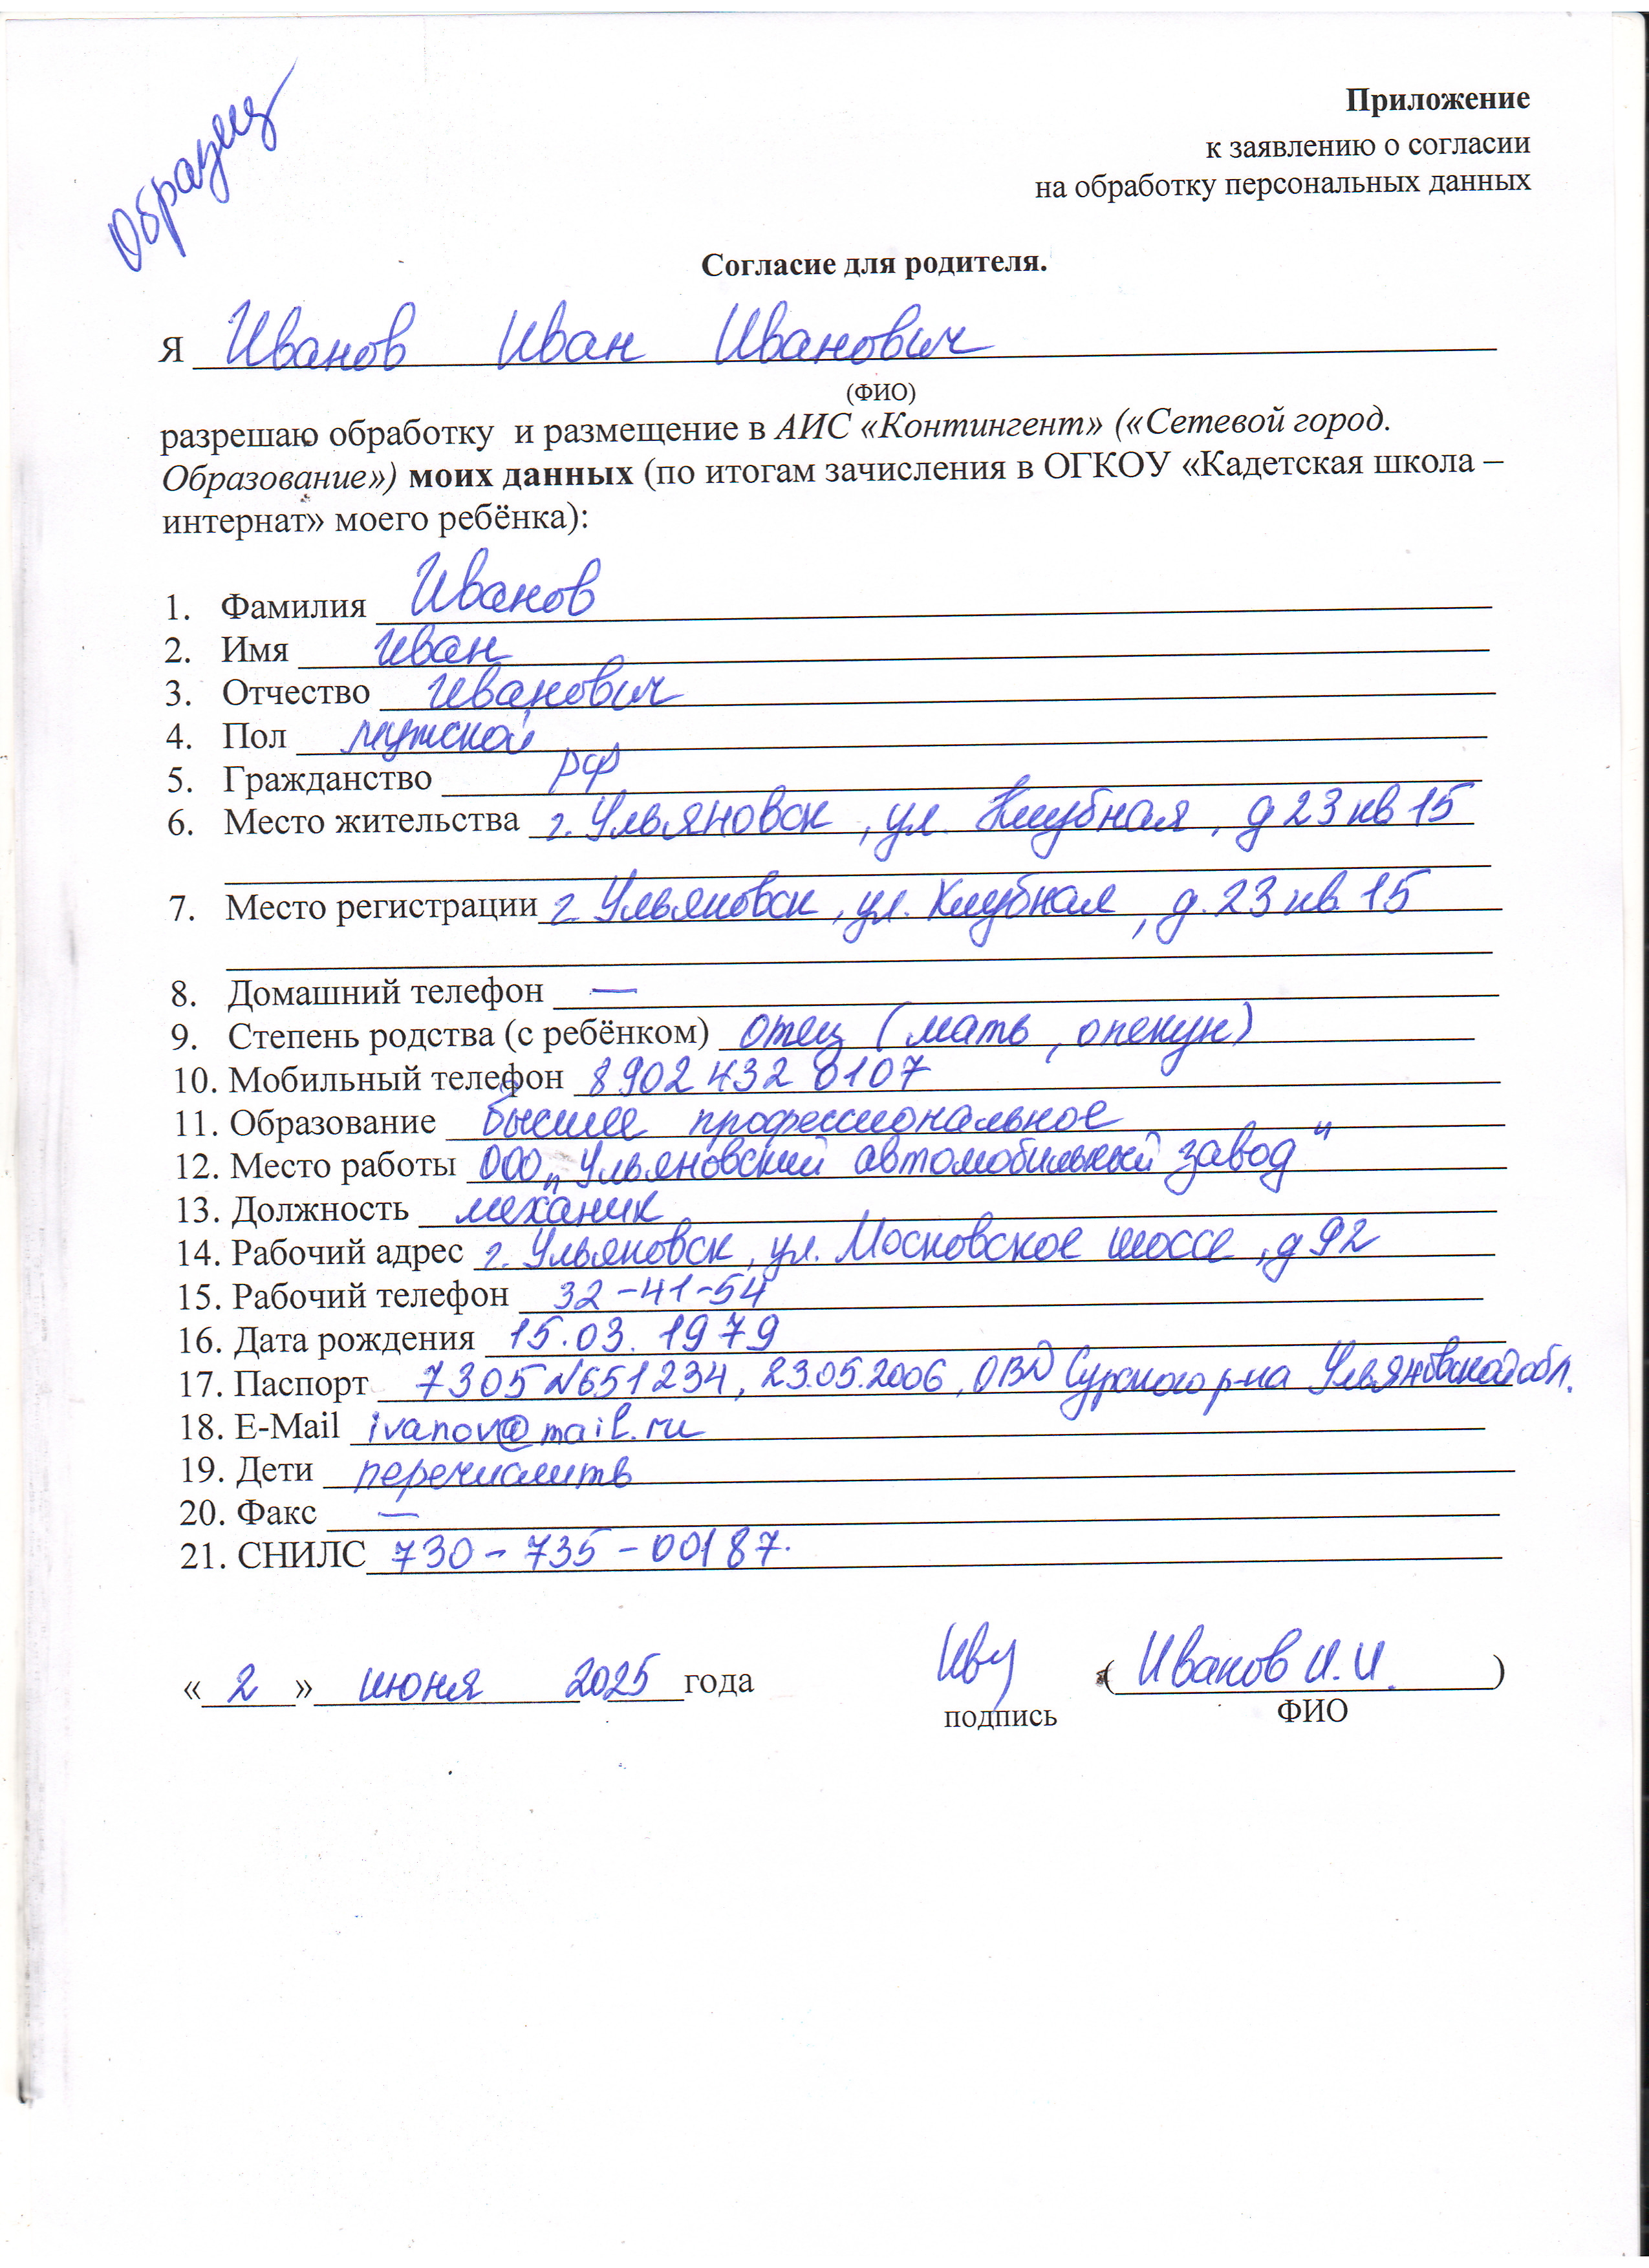 Образец
Приложение
к заявлению о согласии
на обработку персональных данных
Согласие для родителя.
Я Иванов Иван Иванович
(ФИО)
разрешаю обработку и размещение в АИС «Контингент» («Сетевой город.
Образование») моих данных (по итогам зачисления в ОГКОУ «Кадетская школа –
интернат» моего ребёнка):
1. Фамилия Иванов
2. Имя Иван
3. Отчество Иванович
4. Пол мужской
5. Гражданство РФ
6. Место жительства г. Ульяновск, ул. Клубная, д 23 кв 15
7. Место регистрации г. Ульяновск, ул. Клубная, д. 23 кв. 15
8. Домашний телефон —
9. Степень родства (с ребёнком) отец (мать, опекун)
10. Мобильный телефон 8902 432 0107
11. Образование высшее профессиональное
12. Место работы ООО „Ульяновский автомобильный завод"
13. Должность механик
14. Рабочий адрес г. Ульяновск, ул. Московское шоссе, д 92
15. Рабочий телефон 32-41-54
16. Дата рождения 15.03.1979
17. Паспорт 7305 №651234, 23.05.2006, ОВД Сурского р-на Ульяновской обл.
18. E-Mail ivanov@mail.ru
19. Дети перечислить
20. Факс —
21. СНИЛС 730-735-00187.
«2» июня 2025 года Иву (Иванов И.И.)
подпись ФИО